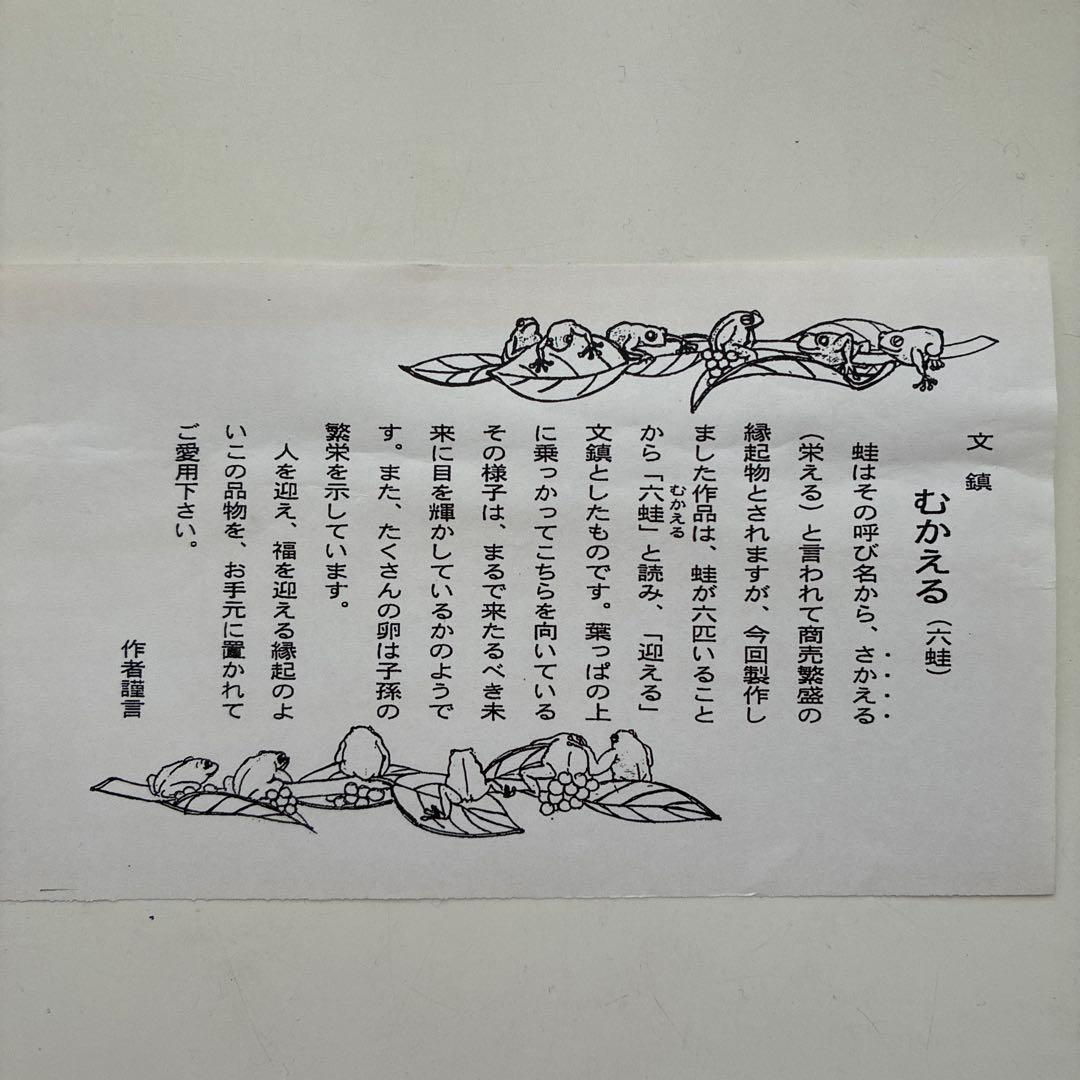 文鎮
むかえる（六蛙）
蛙はその呼び名から、さかえる
（栄える）と言われて商売繁盛の
縁起物とされますが、今回製作し
ました作品は、蛙が六匹いること
むかえる
から「六蛙」と読み、「迎える」
文鎮としたものです。葉っぱの上
に乗っかってこちらを向いている
その様子は、まるで来たるべき未
来に目を輝かしているかのようで
す。また、たくさんの卵は子孫の
繁栄を示しています。
人を迎え、福を迎える縁起のよ
いこの品物を、お手元に置かれて
ご愛用下さい。
作者謹言